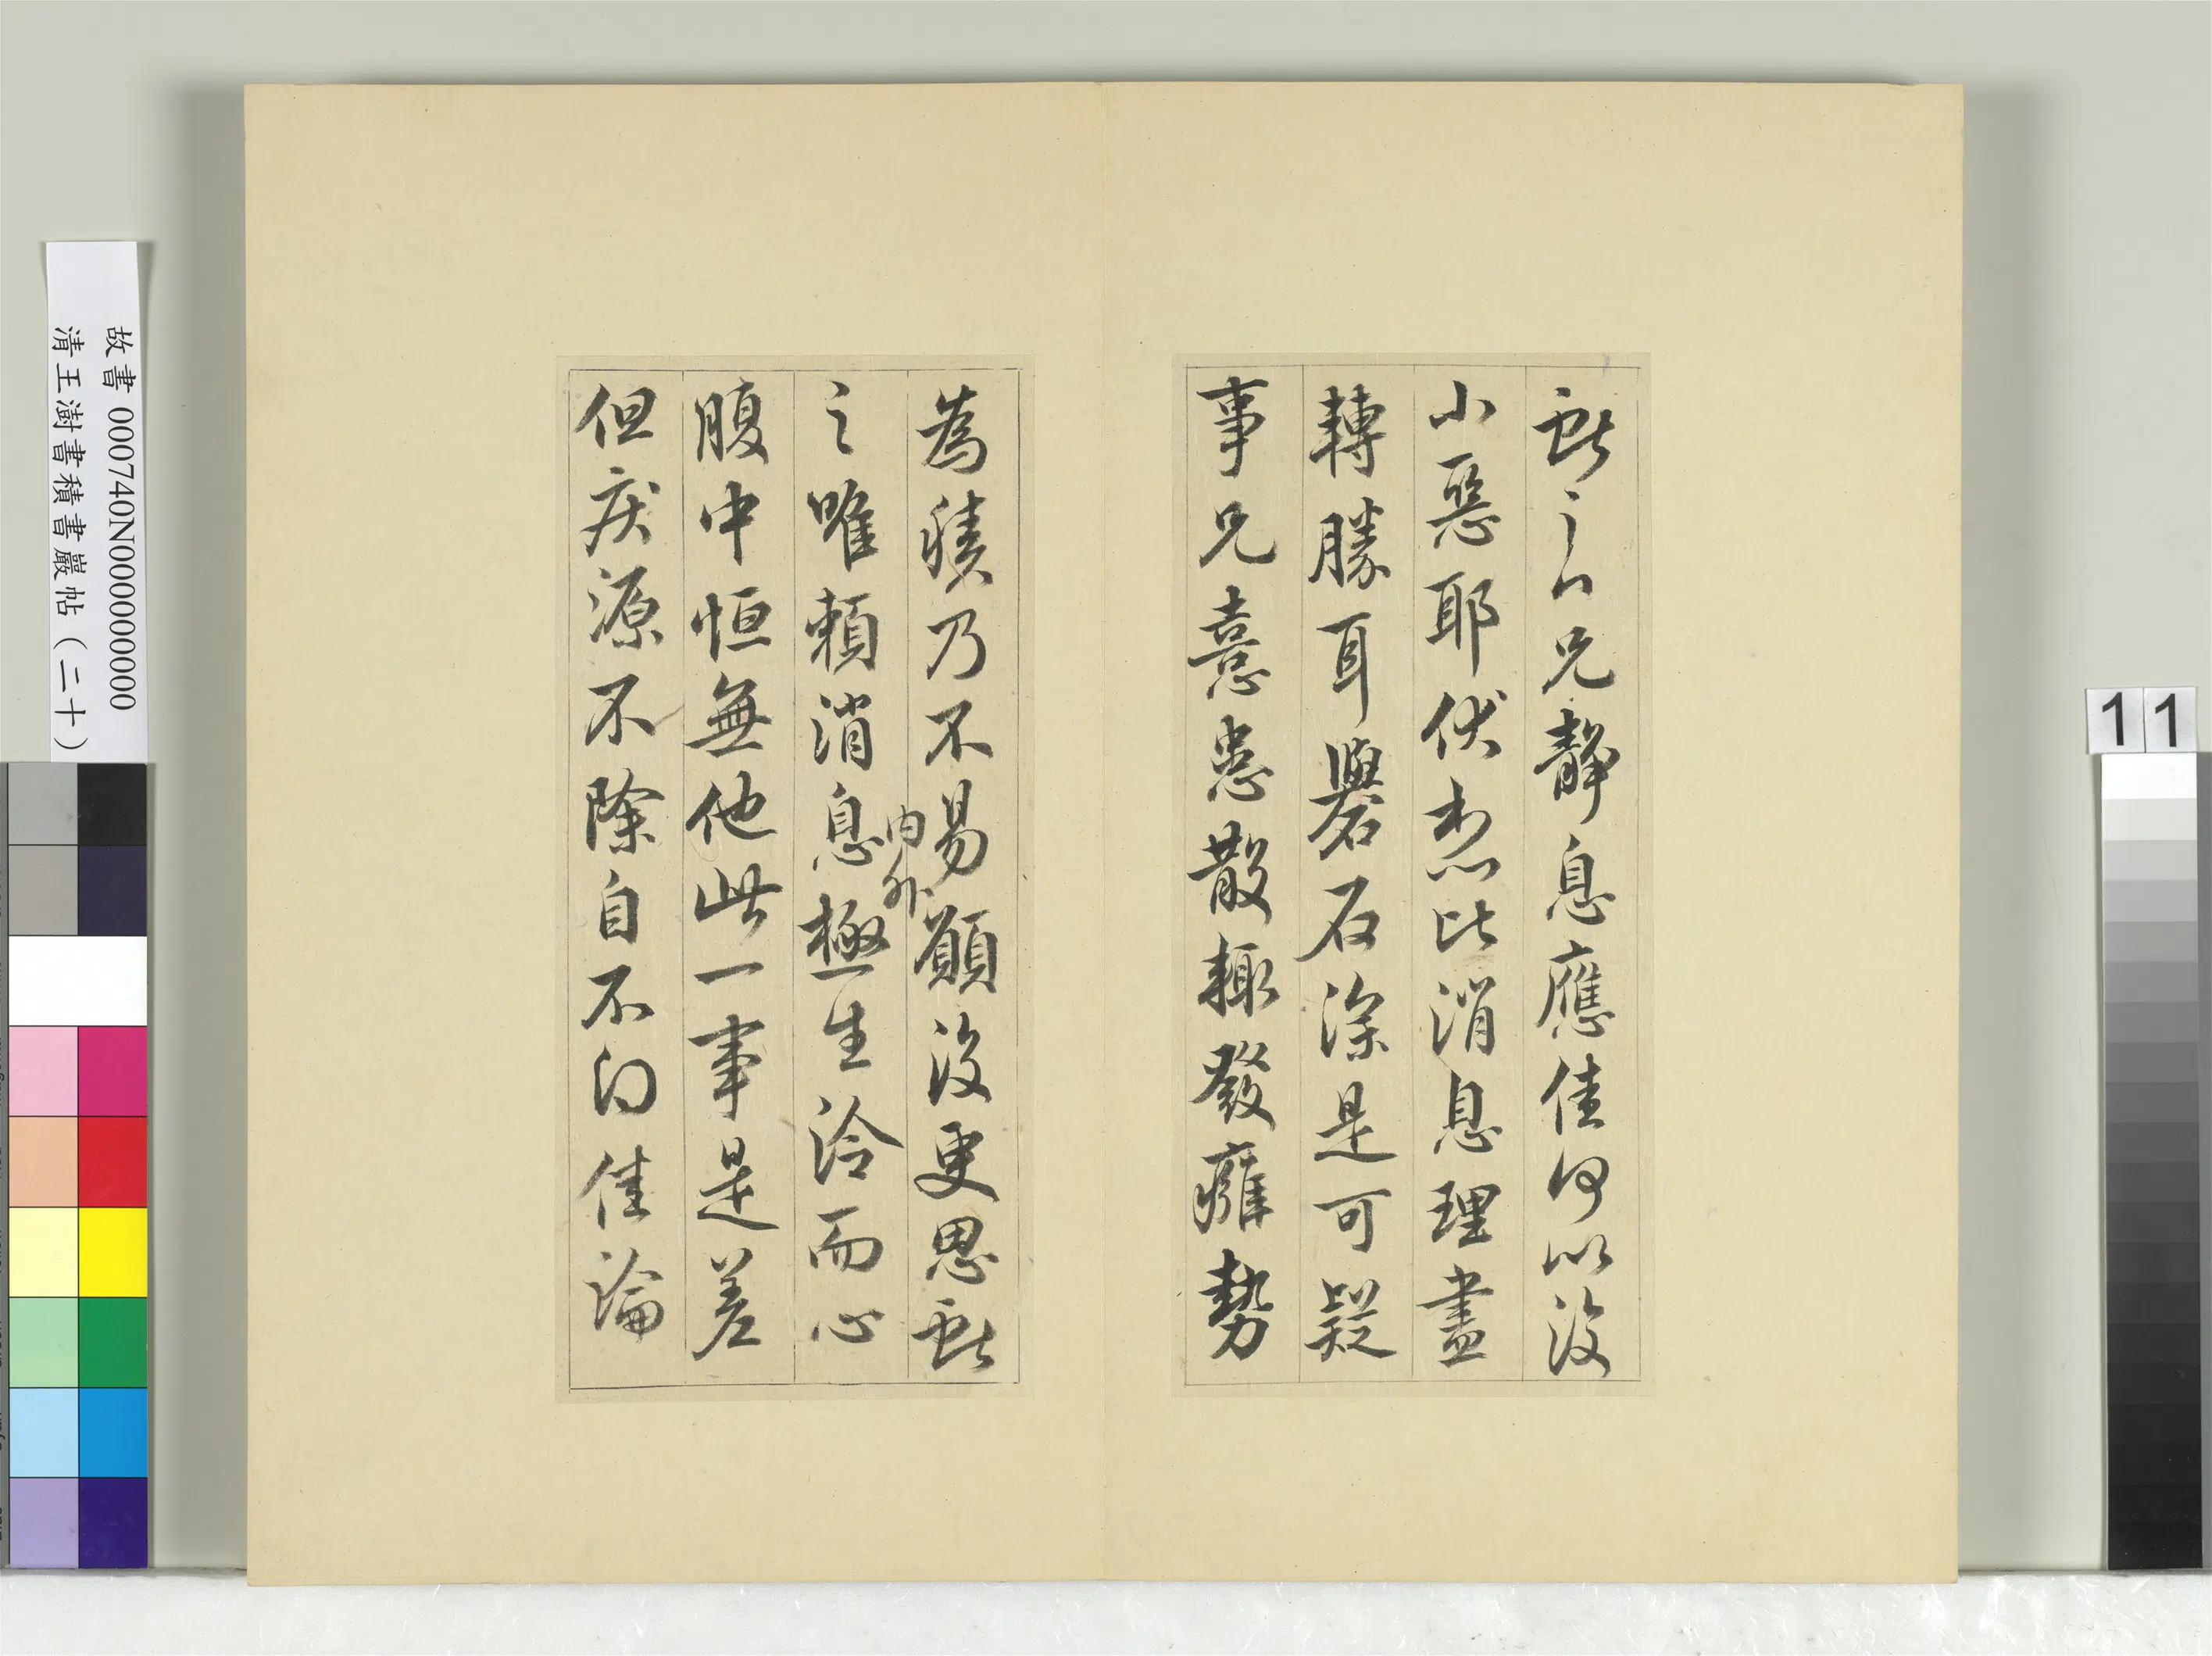 獻之白兄靜息應佳何以復
小惡耶伏想比消息理盡
轉勝耳礜石深是可疑
事兄憙患散輒發癰勢
為積乃不易願復更思獻
之唯賴消息內外極生冷而心
腹中恒無他此一事是差
但疾源不除自不得佳論
故書 000740N000000000
清王澍書積書巖帖(二十)
11